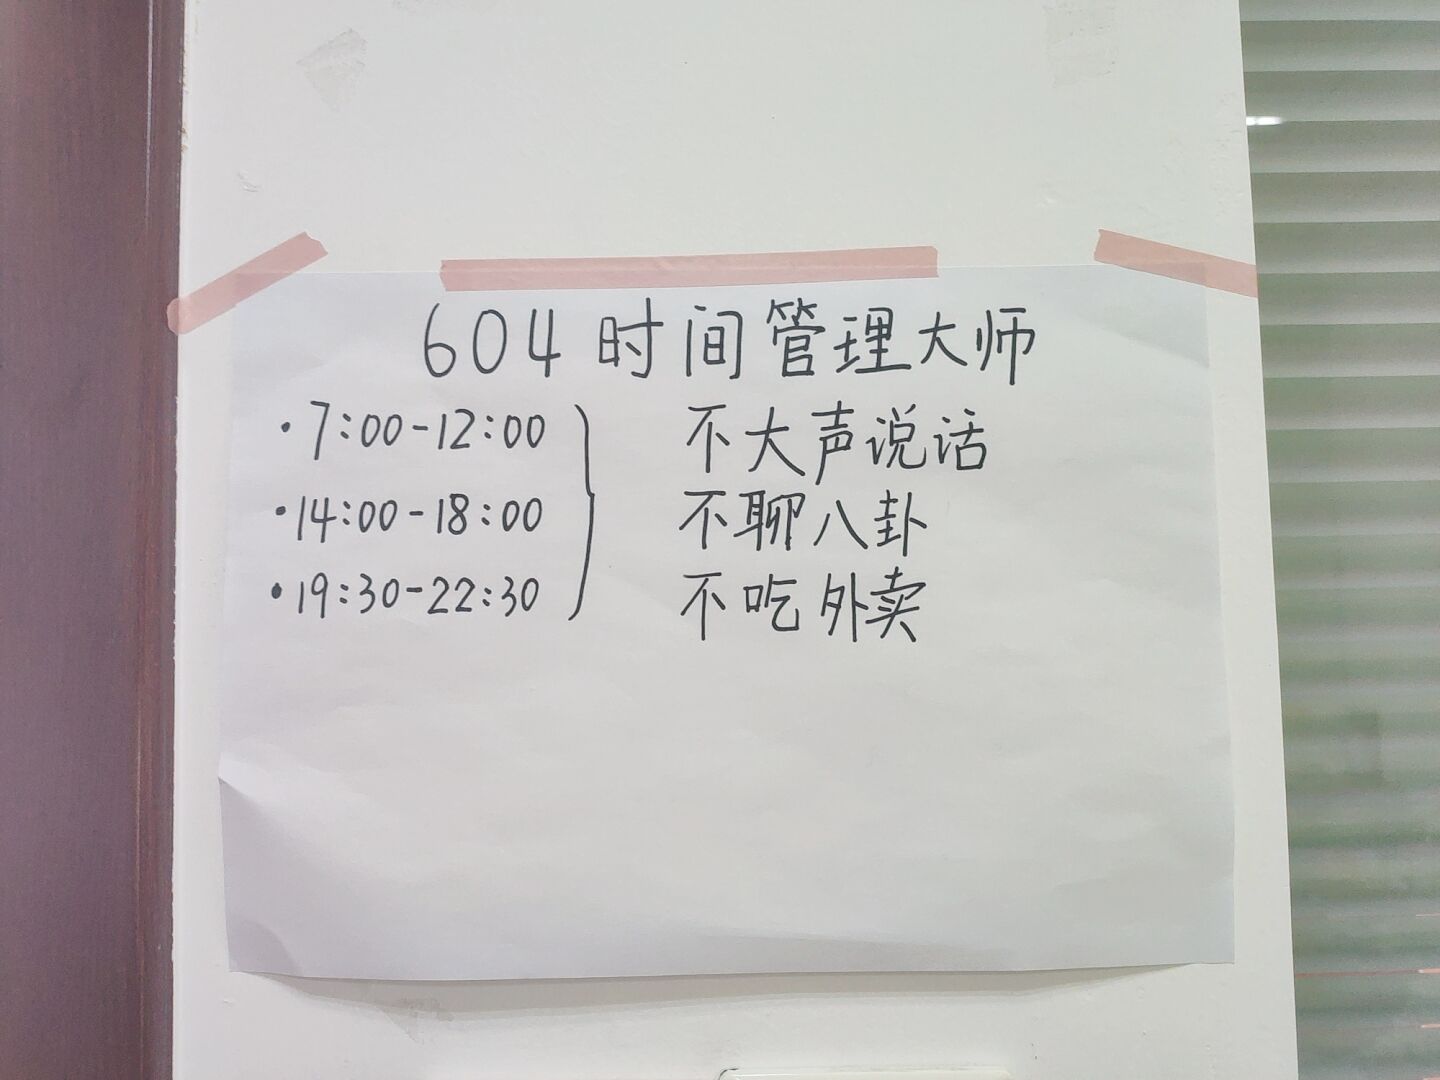 604时间管理大师
·7:00-12:00 不大声说话
·14:00-18:00 不聊八卦
·19:30-22:30 不吃外卖